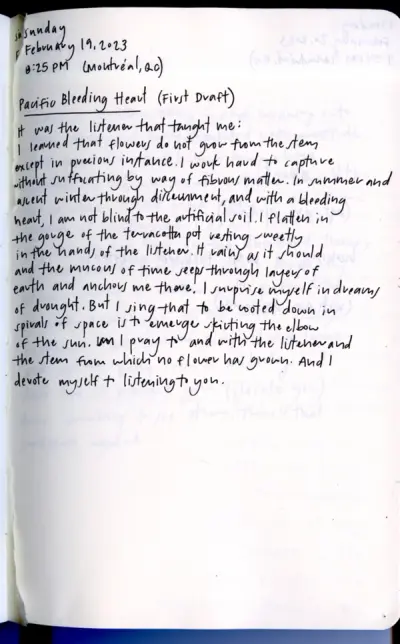 Sunday
February 19, 2023
8:25 PM (Montréal, QC)
Pacific Bleeding Heart (First Draft)
It was the listener that taught me:
I learned that flowers do not grow from the stem,
except in precious instance. I work hard to capture
without suffocating by way of fibrous matter. In summer and
ascent winter through discernment, and with a bleeding
heart, I am not blind to the artificial soil. I flatten in
the gouge of the terracotta pot resting sweetly
in the hands of the listener. It rains as it should
and the mucous of time seeps through layers of
earth and anchors me there. I surprise myself in dreams
of drought. But I sing that to be rooted down in
spirals of space is to emerge skirting the elbow
of the sun. I pray to and with the listener and
the stem from which no flower has grown. And I
devote myself to listening to you.